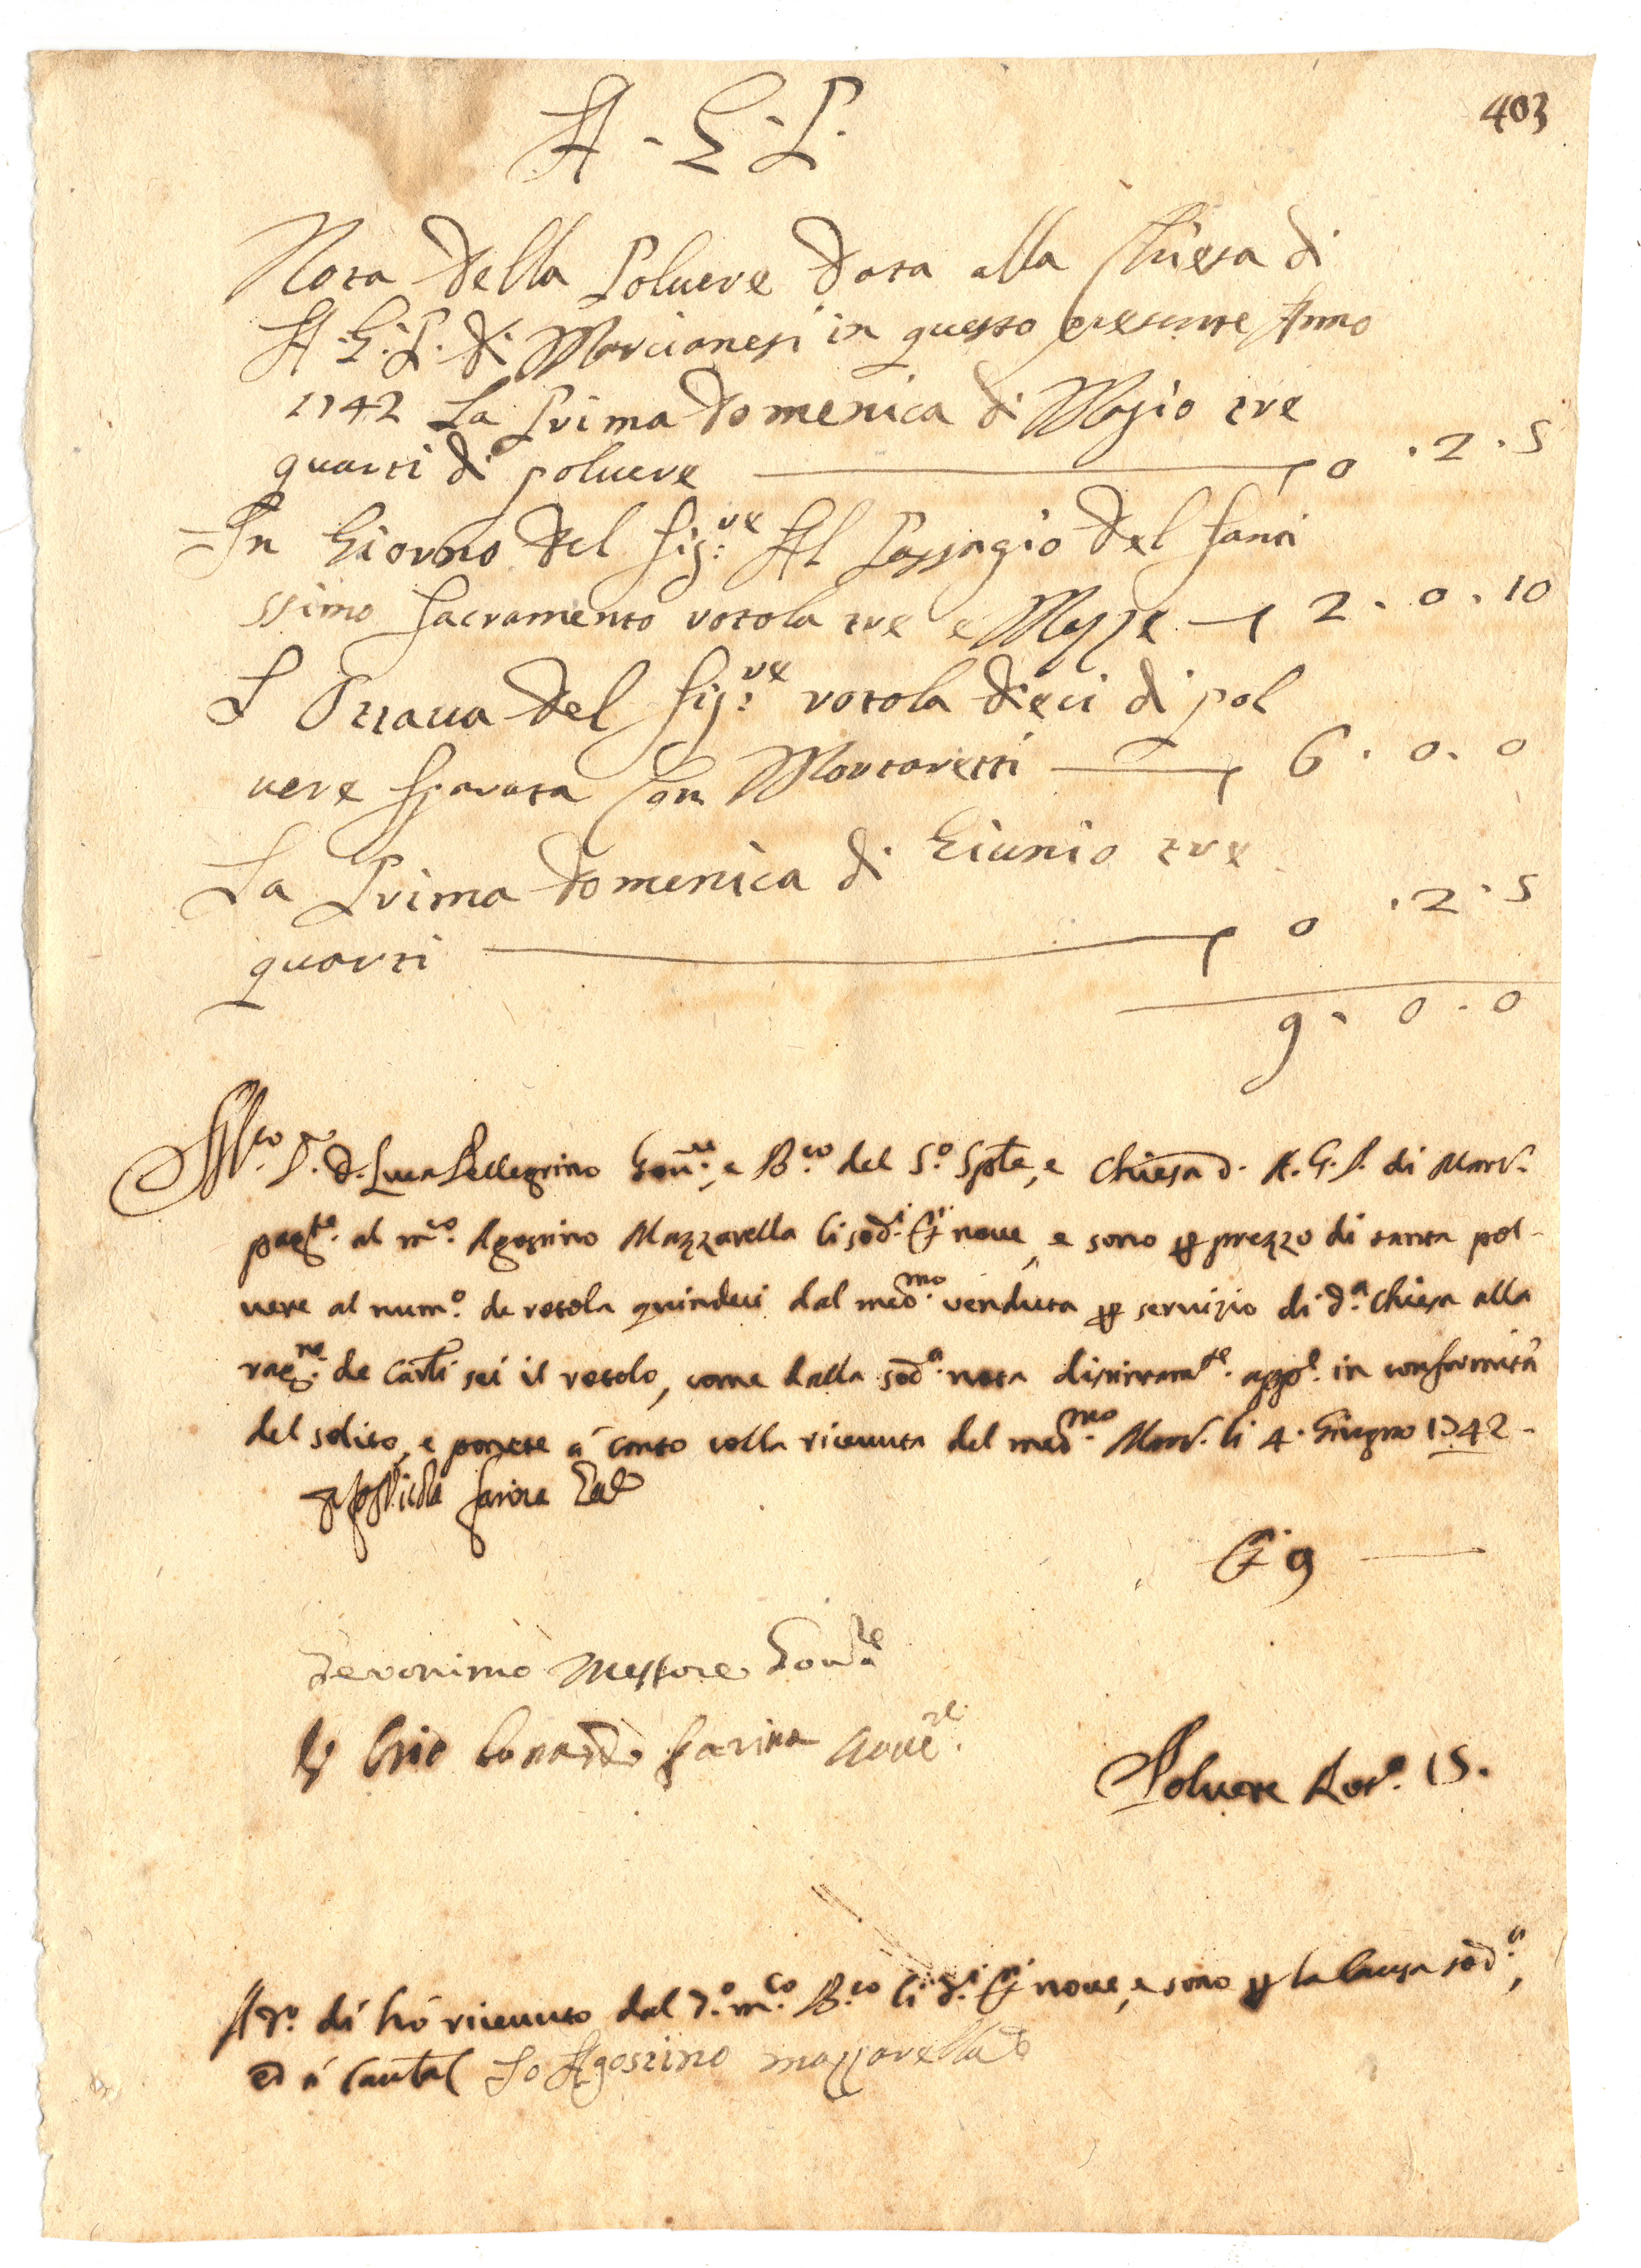 403
A - G - P.
Nota della Poluere data alla Chiesa di
A. G. P. di Marcianesi in questo presente Anno
1742 La Prima domenica di Magio tre
quarti di poluere — 0 . 2 . 5
= In Giorno del sig:re Al Passagio del santi
ssimo sacramento rotola tre e Mezze — 2 . 0 . 10
L Ottaua del sig:re rotola dieci di pol
uere sparata con Mortaretti — 6 . 0 . 0
La Prima domenica di Giunio tre
quarti — 0 . 2 . 5
9 . 0 . 0
D. Luca Pellegrino e B.co del S.o Sp.le, e Chiesa d. A. G. P. di Marc.
pag.te al m.co Agostino Mazzarella li sod.i noue, e sono p prezzo di tanta pol-
uere al num.o de rotola quindeci dal med.mo venduta p seruizio di d.a Chiesa alla
rag.ne de Carli sei il rotolo, come dalla sod.a nota distintam.te app.e in conformità
del solito, e ponete á conto colla riceuuta del med.mo Marc. li 4. Giugno 1742 -
Farina
9 —
Geronimo Messore Gou.re
Lonardo farina Gouer.re
Poluere Rot.a 15.
A d.o dí hó riceuuto dal d.o m.co B.co li d.i noue, e sono p la causa sod.a,
ed á cautel Io Agostino mazzarella